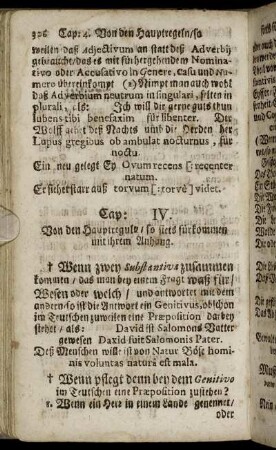 306 Cap: 4. Von den Hauptregeln/so
weilen daß Adjectivum an statt deß Adverbij
gebraucht/das es mit für hergehendem Nomina-
tivo oder Accusativo in Genere, casu und Nu-
mero übereinkompt (2) Nimpt man auch wohl
daß Adverbium neutrum in singulari, selten in
plurali, als: Ich will dir gerne guts thun
lubens tibi benefaxim für libenter. Der
Wolff gehet des Nachts umb die Herden her
Lupus gregibus obambulat nocturnus, für
noctu.
Ein neu gelegt Ey Ovum recens [: recenter
natum.
Er sihet starr auß torvum [: torvè] videt.
Cap: IV.
Von den Hauptreguln/ so stets fürkommen
mit ihrem Anhang.
† Wenn zwey Substantiva zusammen
kommen/ das man bey einem Fragt waß für/
Wesen oder welch/ und antwortet mit dem
andern/so ist die Antwort ein Genitivus, obschon
im Teutschen zuweilen eine Præposition darbey
stehet/ als: David ist Salomons Vatter
gewesen David fuit Salomonis Pater.
Deß Menschen wille ist von Natur Böse homi-
nis voluntas naturâ est mala.
† Wenn pflegt denn bey dem Genitivo
im Teutschen eine Præposition zustehen?
1. Wenn ein Herr in einem Lande genennet/
oder